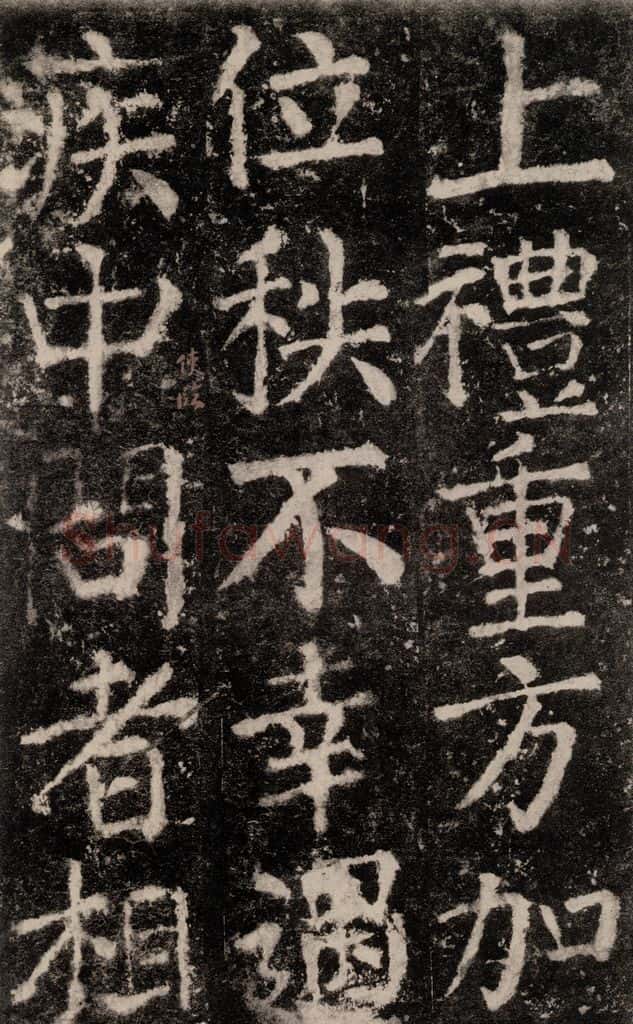 上禮重方加
位秩不幸遇
疾中問者相
Shufawang.CN